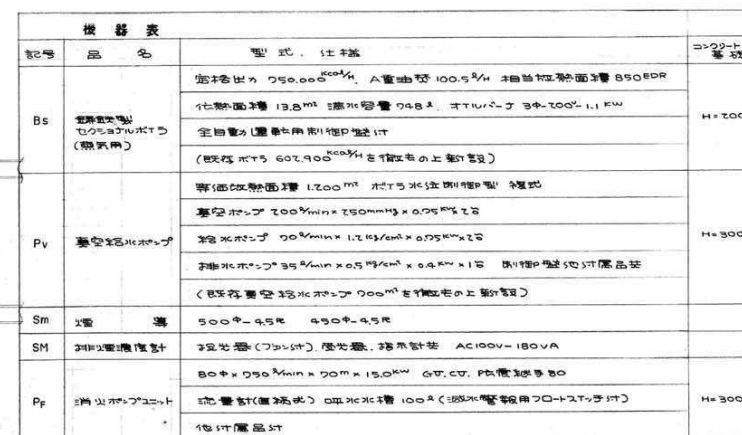 機器表
記号 品名 型式．仕様 コンクリート基礎
Bs 鋳鉄製セクショナルボイラ(蒸気用) H=200
定格出力 750.000Kcal/H. A重油焚 100.5ℓ/H 相当放熱面積 850EDR
伝熱面積 13.8m² 満水容量 748ℓ. オイルバーナ 3Φ-200V-1.1KW
全自動運転用制御盤付
(既存ボイラ 602.900Kcal/Hを撤去の上新設)
Pv 真空給水ポンプ H=300
等価放熱面積 1.200m² ボイラ水位制御型 複式
真空ポンプ 200ℓ/min×250mmHg×0.75KW×2台
給水ポンプ 70ℓ/min×1.2Kg/cm²×0.75KW×2台
排水ポンプ 35ℓ/min×0.5Kg/cm²×0.4KW×1台 制御盤他付属品共
(既存真空給水ポンプ 700m²を撤去の上新設)
Sm 煙導 500Φ-4.5t 450Φ-4.5t
SM 排煙濃度計 投光器(ファン付). 受光器. 指示計共 AC100V-180VA
PF 消火ポンプユニット H=300
80Φ×750ℓ/min×70m×15.0KW GV.CV. 防震継手80
流量計(直稀式) 呼水水槽 100ℓ(減水警報用フロートスイッチ付)
他付属品付